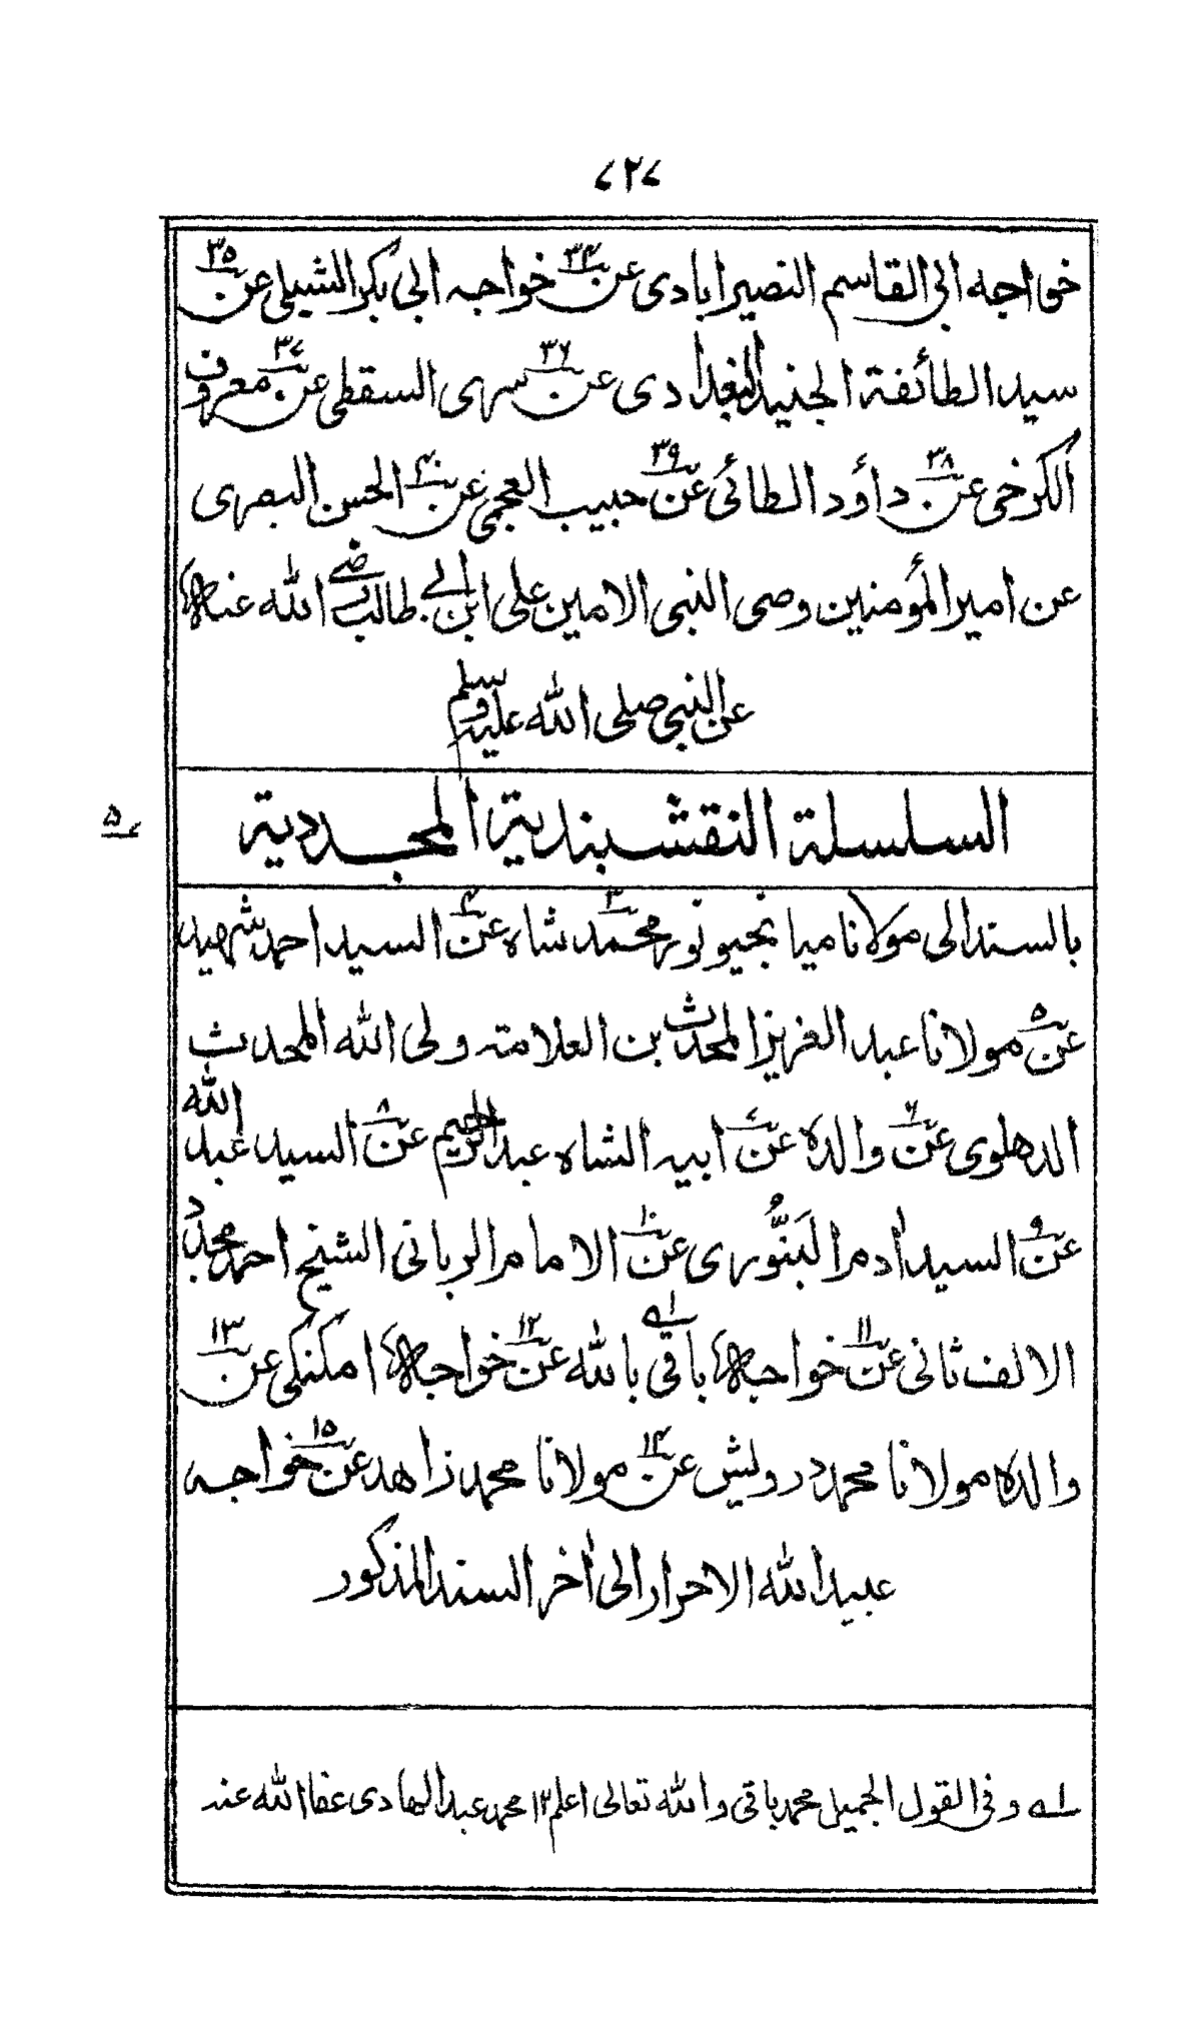 ۷۲۷
خواجه ابی القاسم النصیرابادی عن ۳۴ خواجه ابی بکر الشبلی عن ۳۵
سید الطائفة الجنید البغدادی عن ۳۶ سری السقطی عن ۳۷ معروف
الکرخی عن ۳۸ داؤد الطائی عن ۳۹ حبیب العجمی عن ۴۰ الحسن البصری
عن امیر المؤمنین وصی النبی الامین علی ابن ابی طالب رضی الله عنه
عن النبی صلی الله علیه وسلم
السلسلة النقشبندیة المجددیة
۵
بالسند الی مولانا میانجیو نور محمد شاه ۳ عن ۴ السید احمد شهید
عن ۵ مولانا عبد العزیز المحدث بن العلامة ولی الله المحدث
الدهلوی عن ۶ والده عن ۷ ابیه الشاه عبد الرحیم عن ۸ السید عبد الله
عن ۹ السید اٰدم البَنُّوری عن ۱۰ الامام الربانی الشیخ احمد مجدد
الالف ثانی عن ۱۱ خواجه باقی باللّٰه عن ۱۲ خواجه امکنکی عن ۱۳
والده مولانا محمد درویش عن ۱۴ مولانا محمد زاهد عن ۱۵ خواجه
عبید الله الاحرار الی اٰخر السند المذکور
لے وفی القول الجمیل محمد باقی والله تعالی اعلم ۱۲ محمد عبد الهادی عفا الله عنه